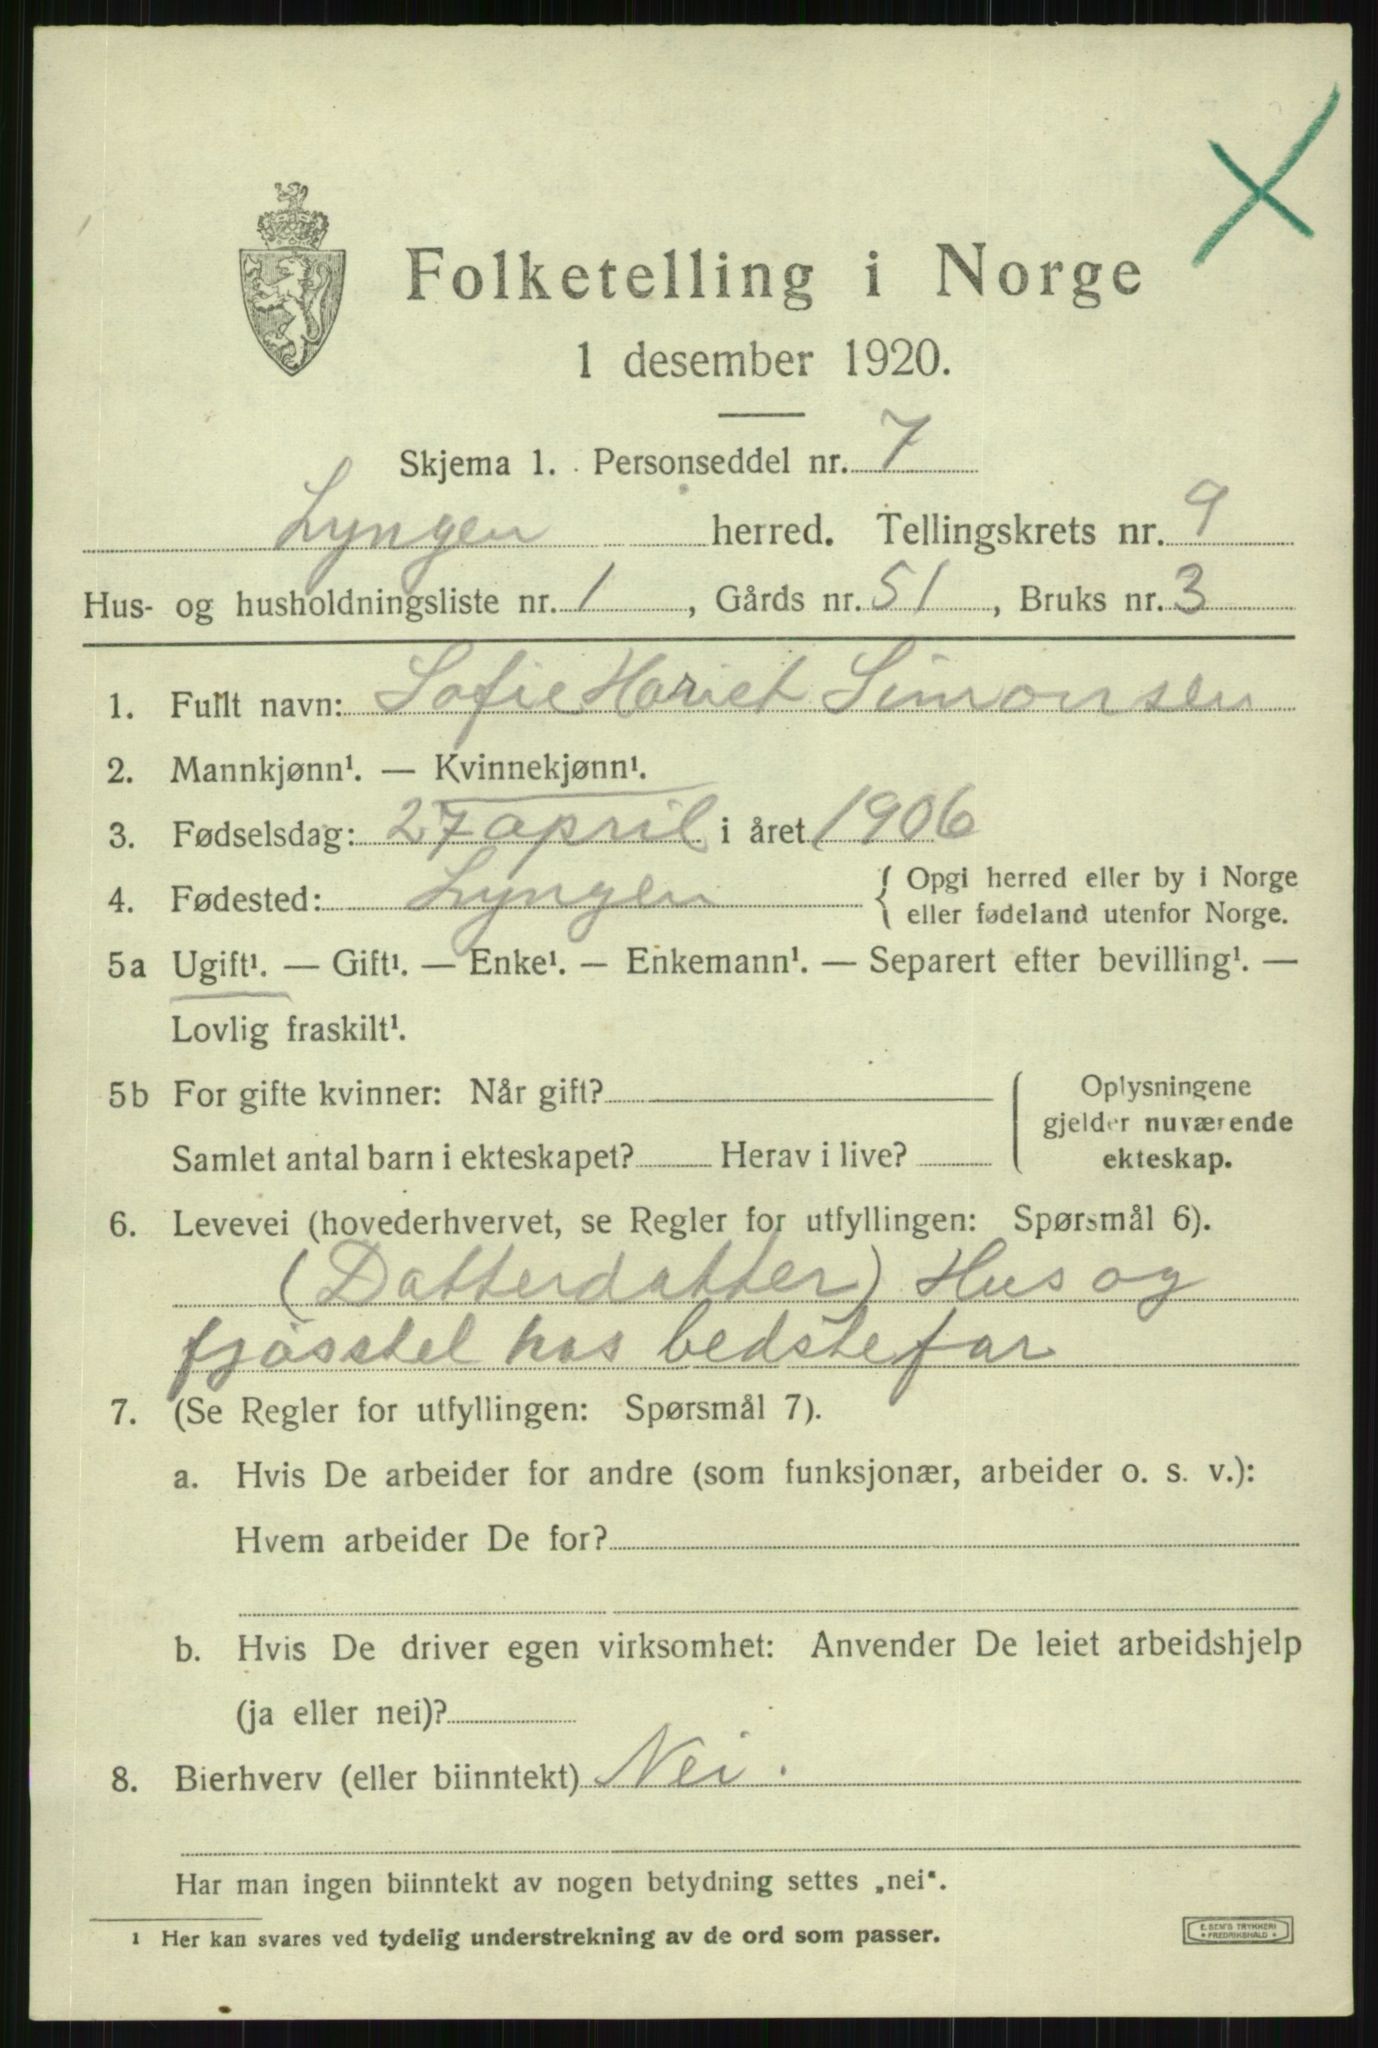 Folketelling i Norge
1 desember 1920.
Skjema 1. Personseddel nr. 7
Lyngen herred. Tellingskrets nr. 9
Hus- og husholdningsliste nr. 1, Gårds nr. 51, Bruks nr. 3
1. Fullt navn: Sofie Hariet Simonsen
2. Mannkjønn¹. — Kvinnekjønn¹.
3. Fødselsdag: 27 april i året 1906
4. Fødested: Lyngen { Opgi herred eller by i Norge
eller fødeland utenfor Norge.
5a Ugift¹. — Gift¹. — Enke¹. — Enkemann¹. — Separert efter bevilling¹. —
Lovlig fraskilt¹.
5b For gifte kvinner: Når gift?
Samlet antal barn i ekteskapet? Herav i live?
Oplysningene
gjelder nuværende
ekteskap.
6. Levevei (hovederhvervet, se Regler for utfyllingen: Spørsmål 6).
(Datterdatter) Hus og
fjøsstel hos bedstefar
7. (Se Regler for utfyllingen: Spørsmål 7).
a. Hvis De arbeider for andre (som funksjonær, arbeider o. s. v.):
Hvem arbeider De for?
b. Hvis De driver egen virksomhet: Anvender De leiet arbeidshjelp
(ja eller nei)?
8. Bierhverv (eller biinntekt) Nei.
Har man ingen biinntekt av nogen betydning settes „nei“.
¹ Her kan svares ved tydelig understrekning av de ord som passer.
E. SEM'S TRYKKERI
FREDRIKSHALD